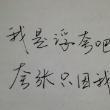 我是浮夸吧
夸张只因我